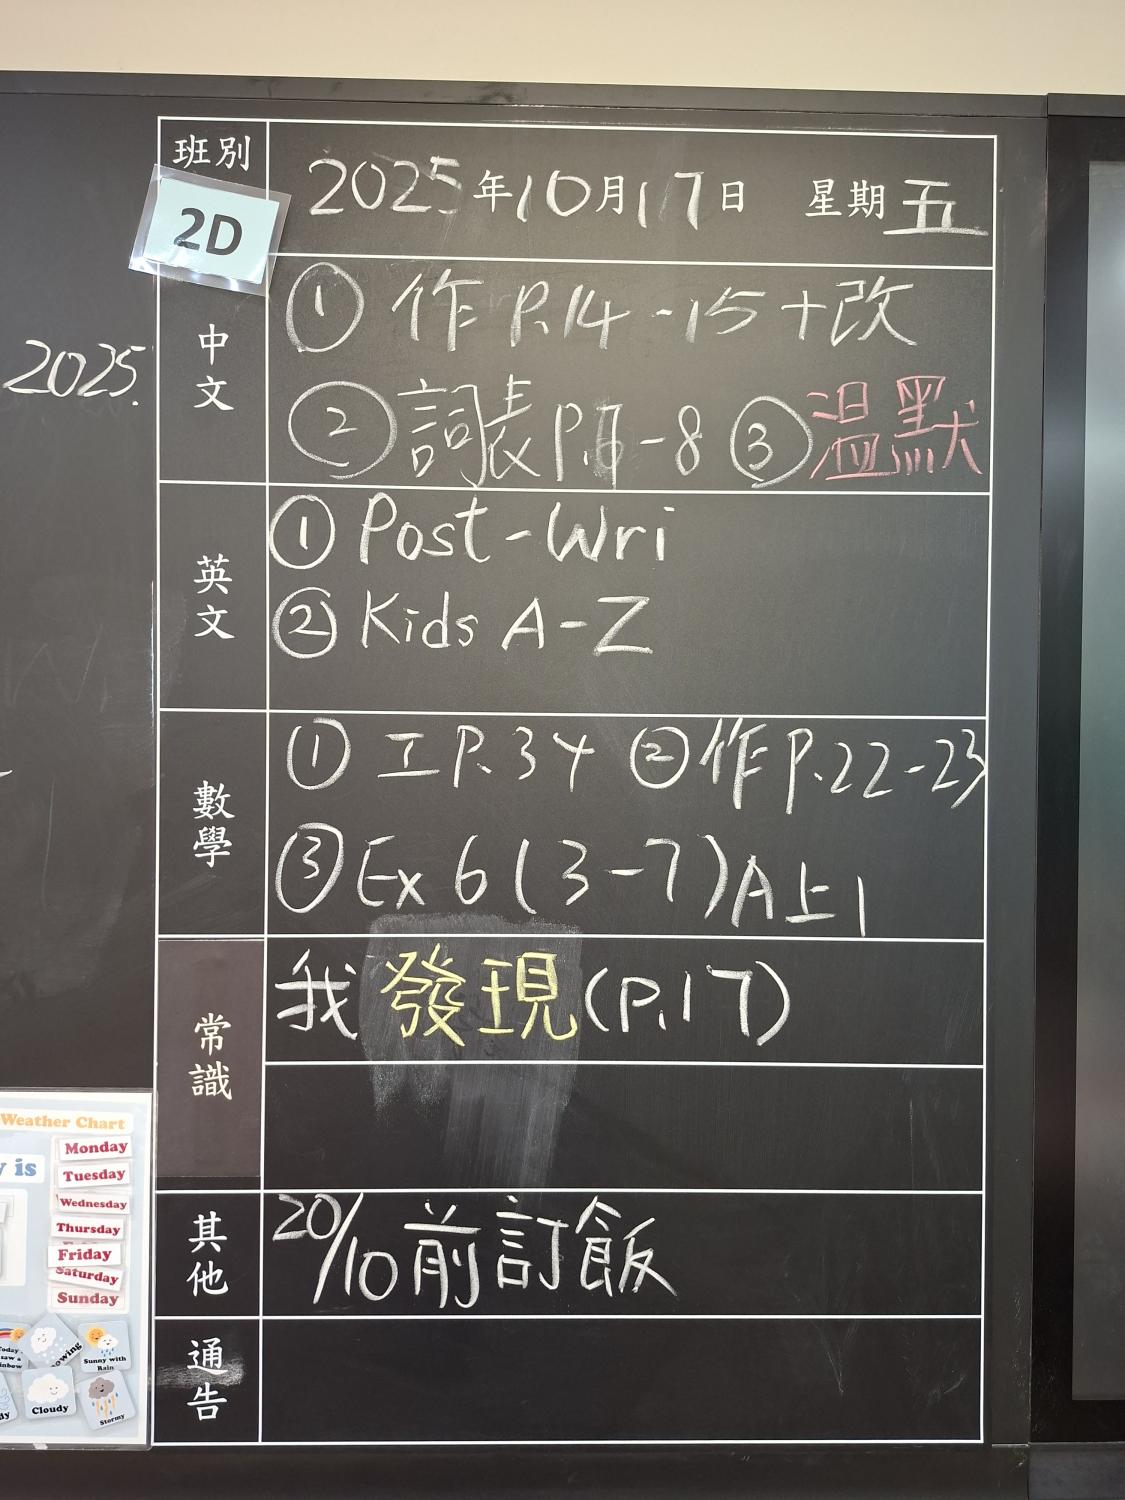 班別
2D
2025年10月17日 星期五
中文
① 作 P.14-15+改
② 詞表 P. -8 ③ 溫默
英文
① Post-Wri
② Kids A-Z
數學
① 工 P.34 ② 作 P.22-23
③ Ex 6 (3-7) A上1
常識
我發現(P.17)
其他
20/10前訂飯
通告
2025.
Weather Chart
y is
Monday
Tuesday
Wednesday
Thursday
Friday
Saturday
Sunday
Today I
saw a
owing
Sunny with
Rain
dy
Cloudy
Stormy